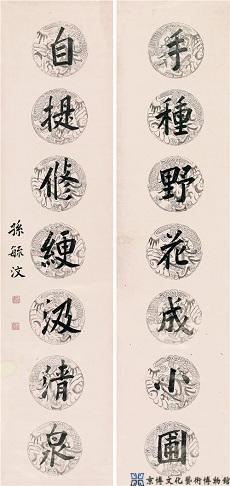 手種野花成小圃
自提修綆汲清泉
孫毓汶
京博文化藝術博物館